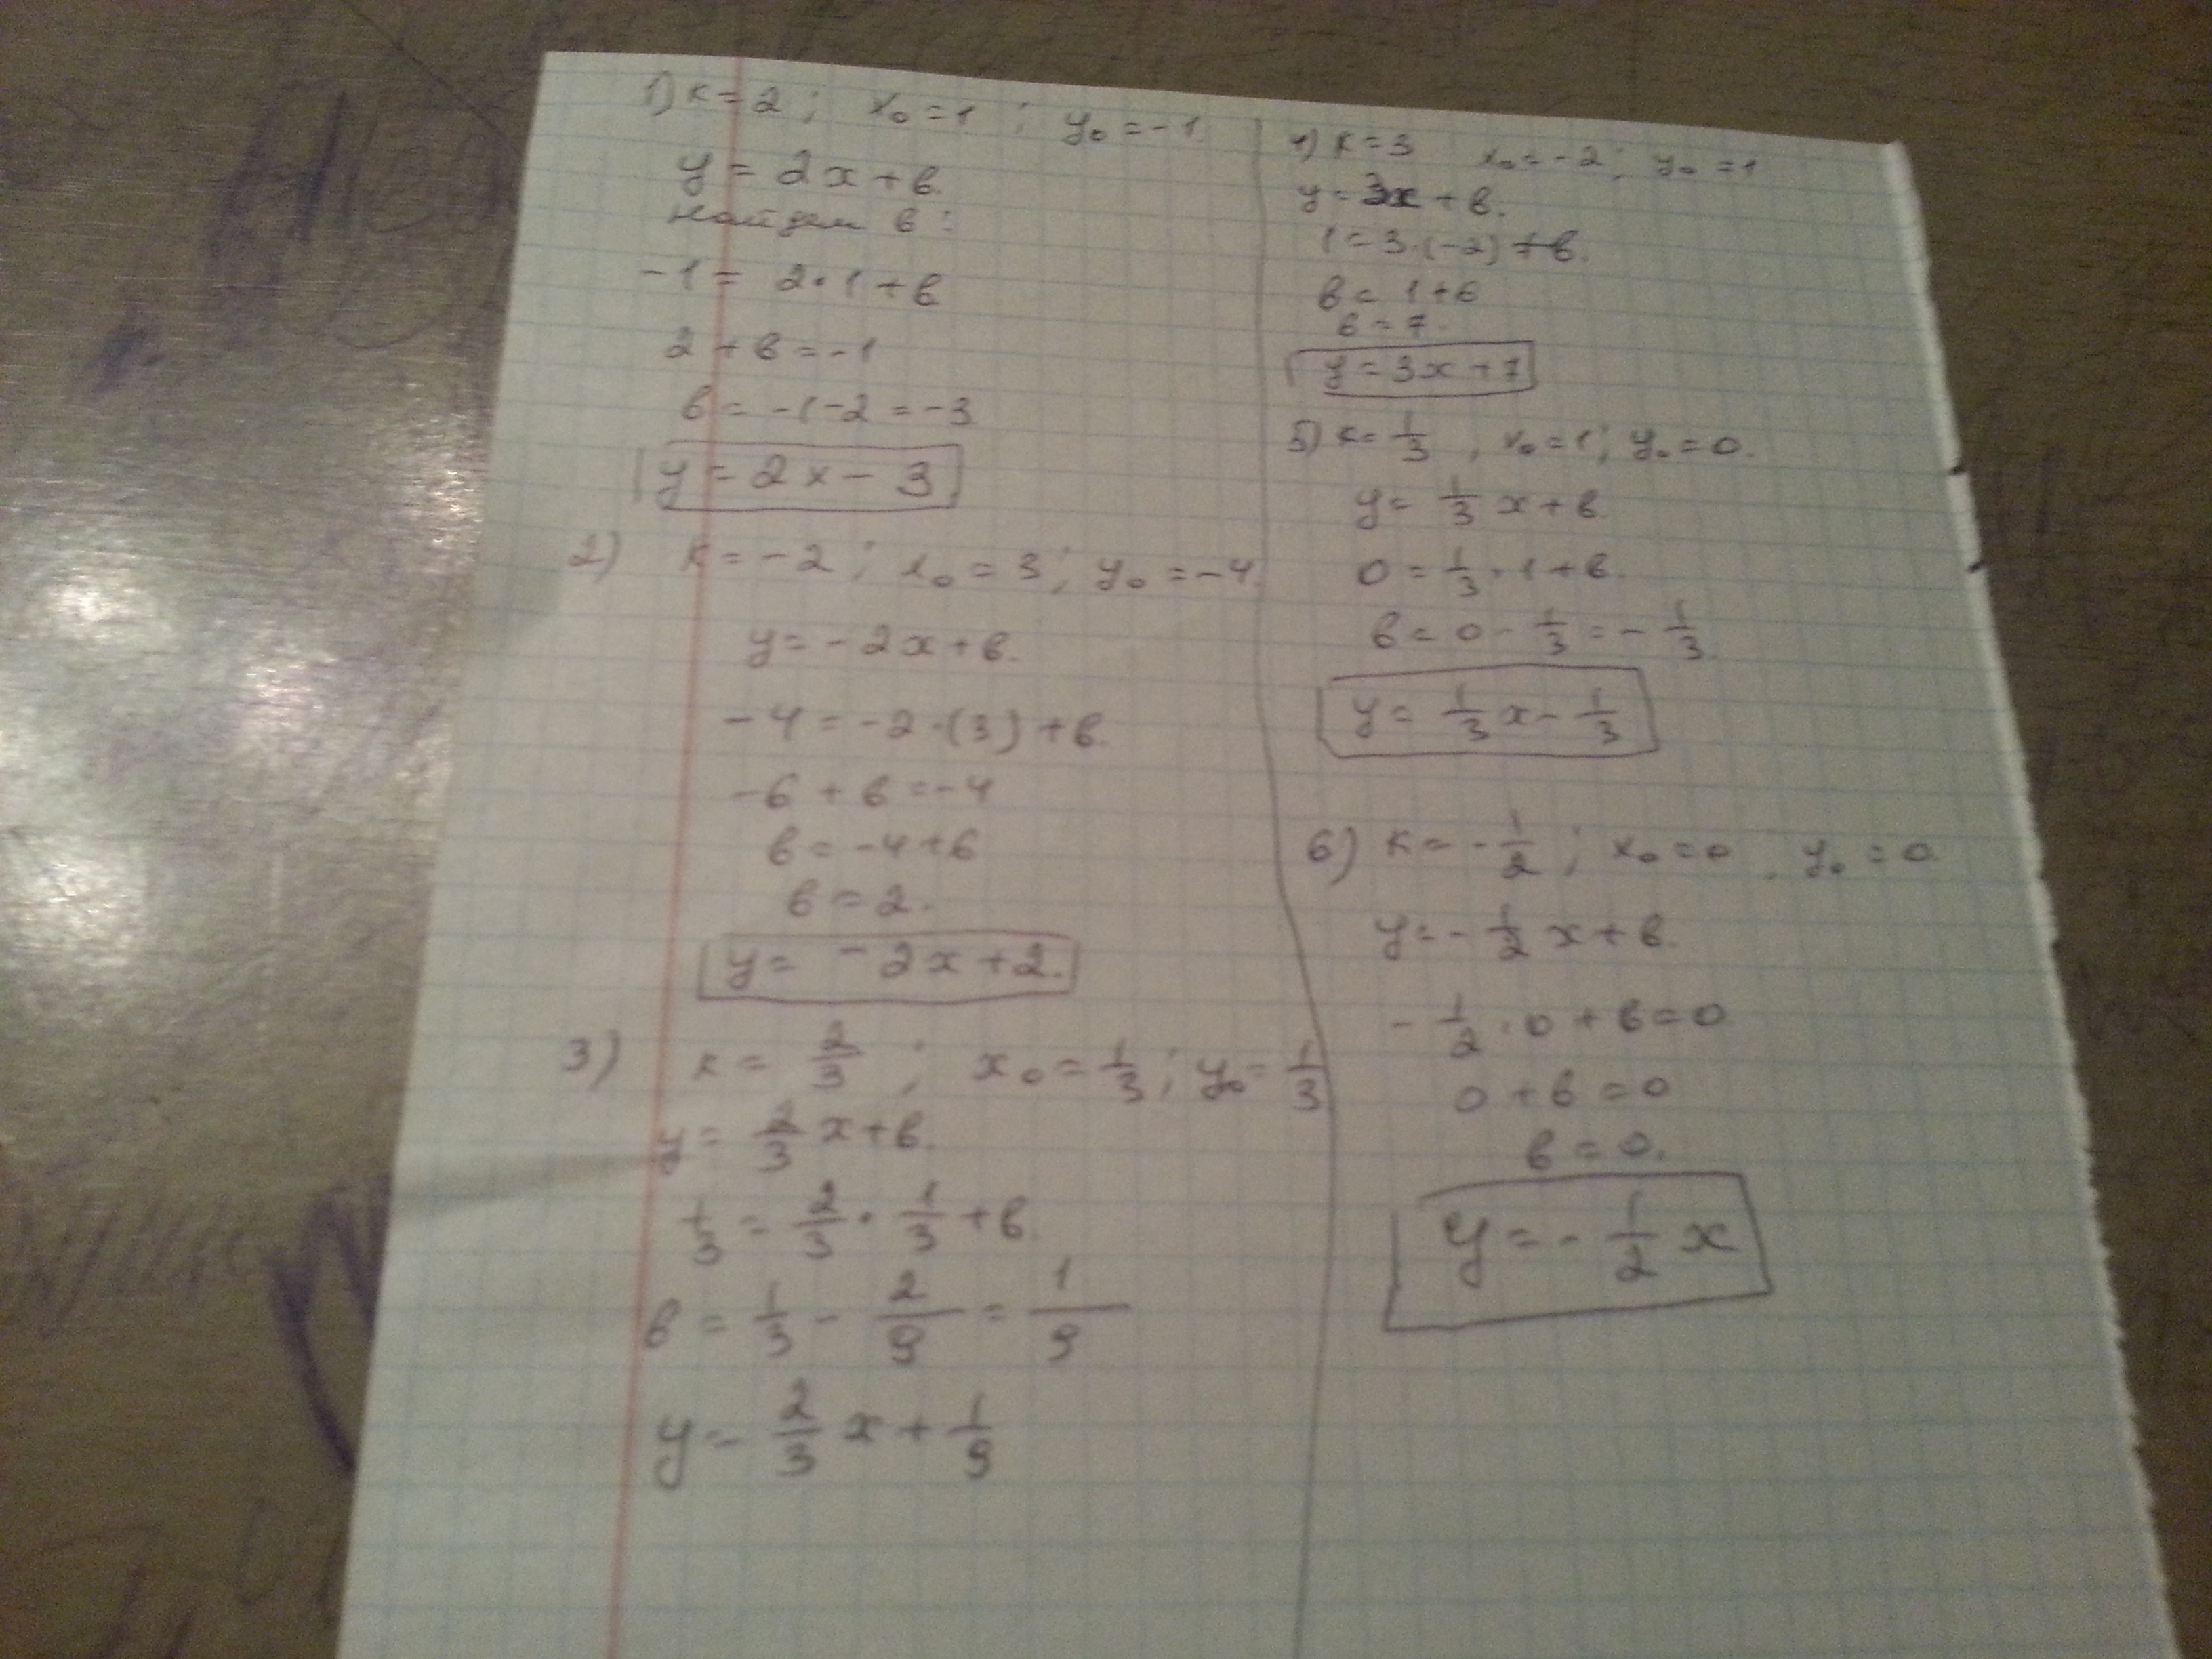 1) к = 2 ; x₀ = 1 ; y₀ = -1
y = 2x + в.
Найдем в :
-1 = 2·1 + в
2 + в = -1
в = -1-2 = -3
y = 2x - 3
2) к = -2 ; x₀ = 3 ; y₀ = -4.
y = -2x + в.
-4 = -2·(3) + в.
-6 + в = -4
в = -4+6
в = 2.
y = -2x + 2.
3) к = 2/3 ; x₀ = 1/3 ; y₀ = 1/3
y = 2/3 x + в.
1/3 = 2/3 · 1/3 + в.
в = 1/3 - 2/9 = 1/9
y = 2/3 x + 1/9
4) к = 3 x₀ = -2 ; y₀ = 1
y = 3x + в.
1 = 3·(-2) + в.
в = 1+6
в = 7.
y = 3x + 7
5) к = 1/3 , x₀ = 1 ; y₀ = 0.
y = 1/3 x + в.
0 = 1/3 · 1 + в.
в = 0 - 1/3 = - 1/3.
y = 1/3 x - 1/3
6) к = - 1/2 ; x₀ = 0 , y₀ = 0.
y = - 1/2 x + в.
- 1/2 · 0 + в = 0
0 + в = 0
в = 0.
y = - 1/2 x